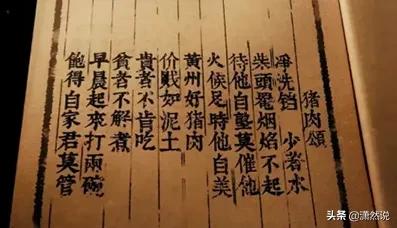 猪肉頌
淨洗铛 少著水
柴頭罨烟焰不起
待他自塾莫催他
火候足時他自美
黄州好猪肉
价贱如泥土
貴者不肯吃
貧者不解煮
早晨起來打兩碗
飽得自家君莫管
头条 @潇然说